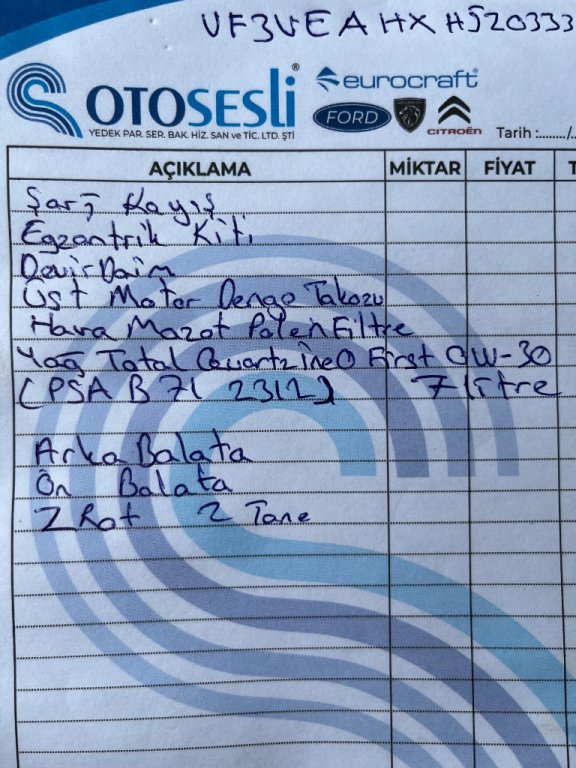 VF3VEAHXHJ520333
OTOSESLİ®
YEDEK PAR. SER. BAK. HİZ. SAN ve TİC. LTD. ŞTİ
eurocraft
FORD
CITROËN
Tarih :......../..
AÇIKLAMA MİKTAR FİYAT T
Şarj Kayış
Egzantrik Kiti
DevirDaim
Üst Motor Denge Takozu
Hava Mazot Polen Filtre
Yağ Total Quartz İneo First 0W-30
(PSA B71 2312) 7 litre
Arka Balata
Ön Balata
Z Rot 2 Tane